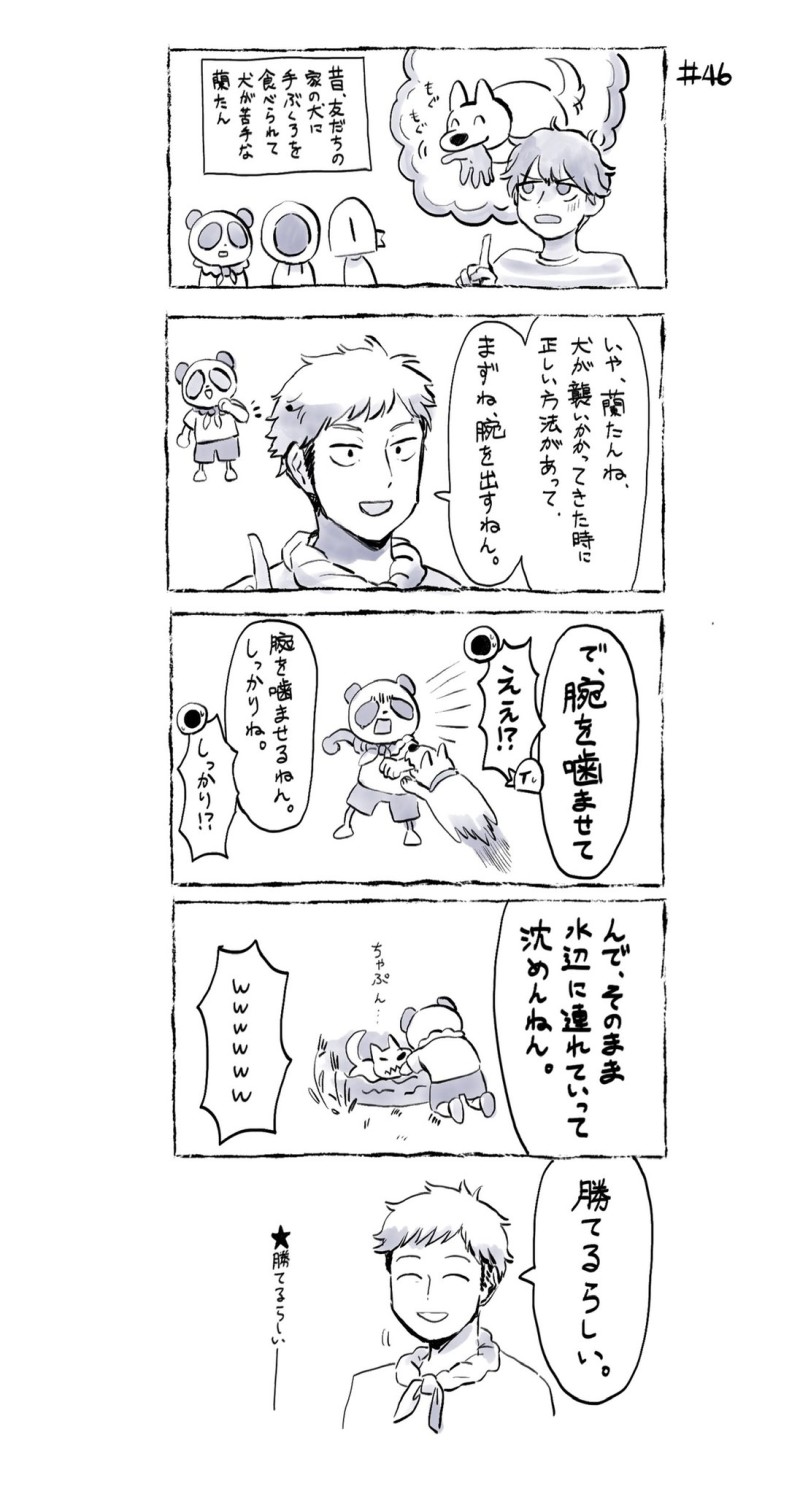 #46
昔、友だちの
家の犬に
手ぶくろを
食べられて
犬が苦手な
蘭たん
もぐ
もぐ
いや、蘭たんね、
犬が襲いかかってきた時に
正しい方法があって、
まずね、腕を出すねん。
で、腕を噛ませて
ええ!?
腕を噛ませるねん。
しっかりね。
しっかり!?
んで、そのまま
水辺に連れていって
沈めんねん。
ちゃぷん…
wwwwwww
勝てるらしい。
★勝てるらしい